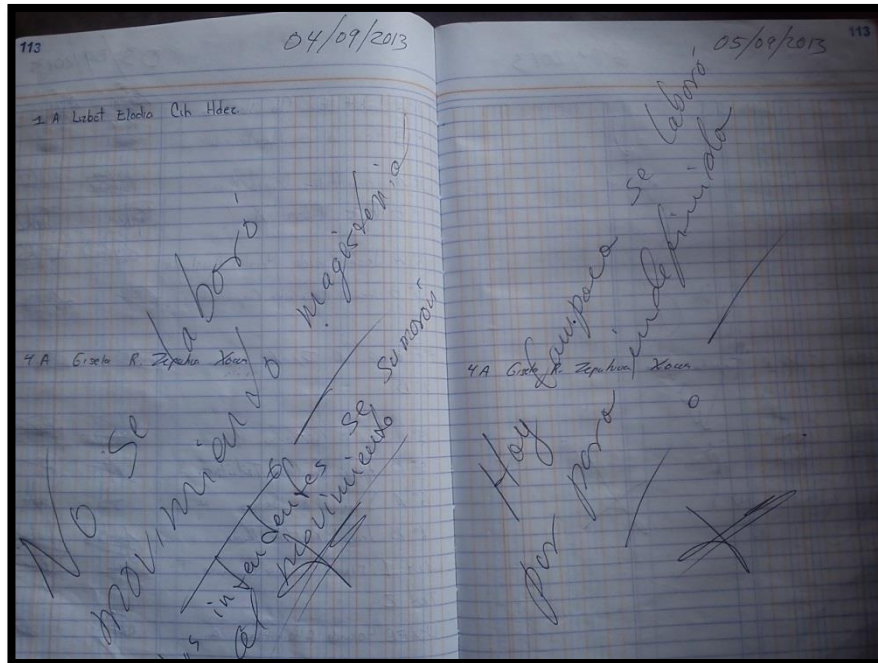 113
04/09/2013
1 A Lizbet Eladia Cih Hdez
4 A Gisela R. Zepahua Xocua
No se laboró
movimiento magisterial
intendentes se sumarón
al movimiento
113
05/09/2013
4 A Gisela R. Zepahua Xocua
Hoy tampoco se laboró
por paro indefinido